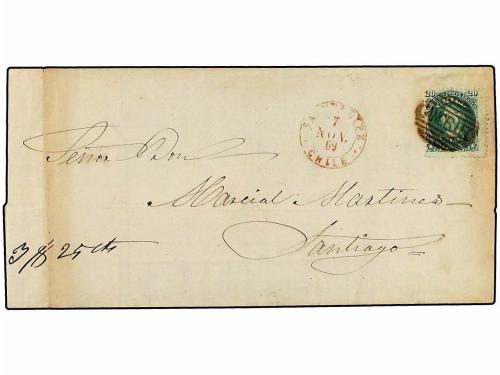 20 20
7
NOV.
69
CHILE
Señor Don
Marcial Martinez
Santiago
25 cts